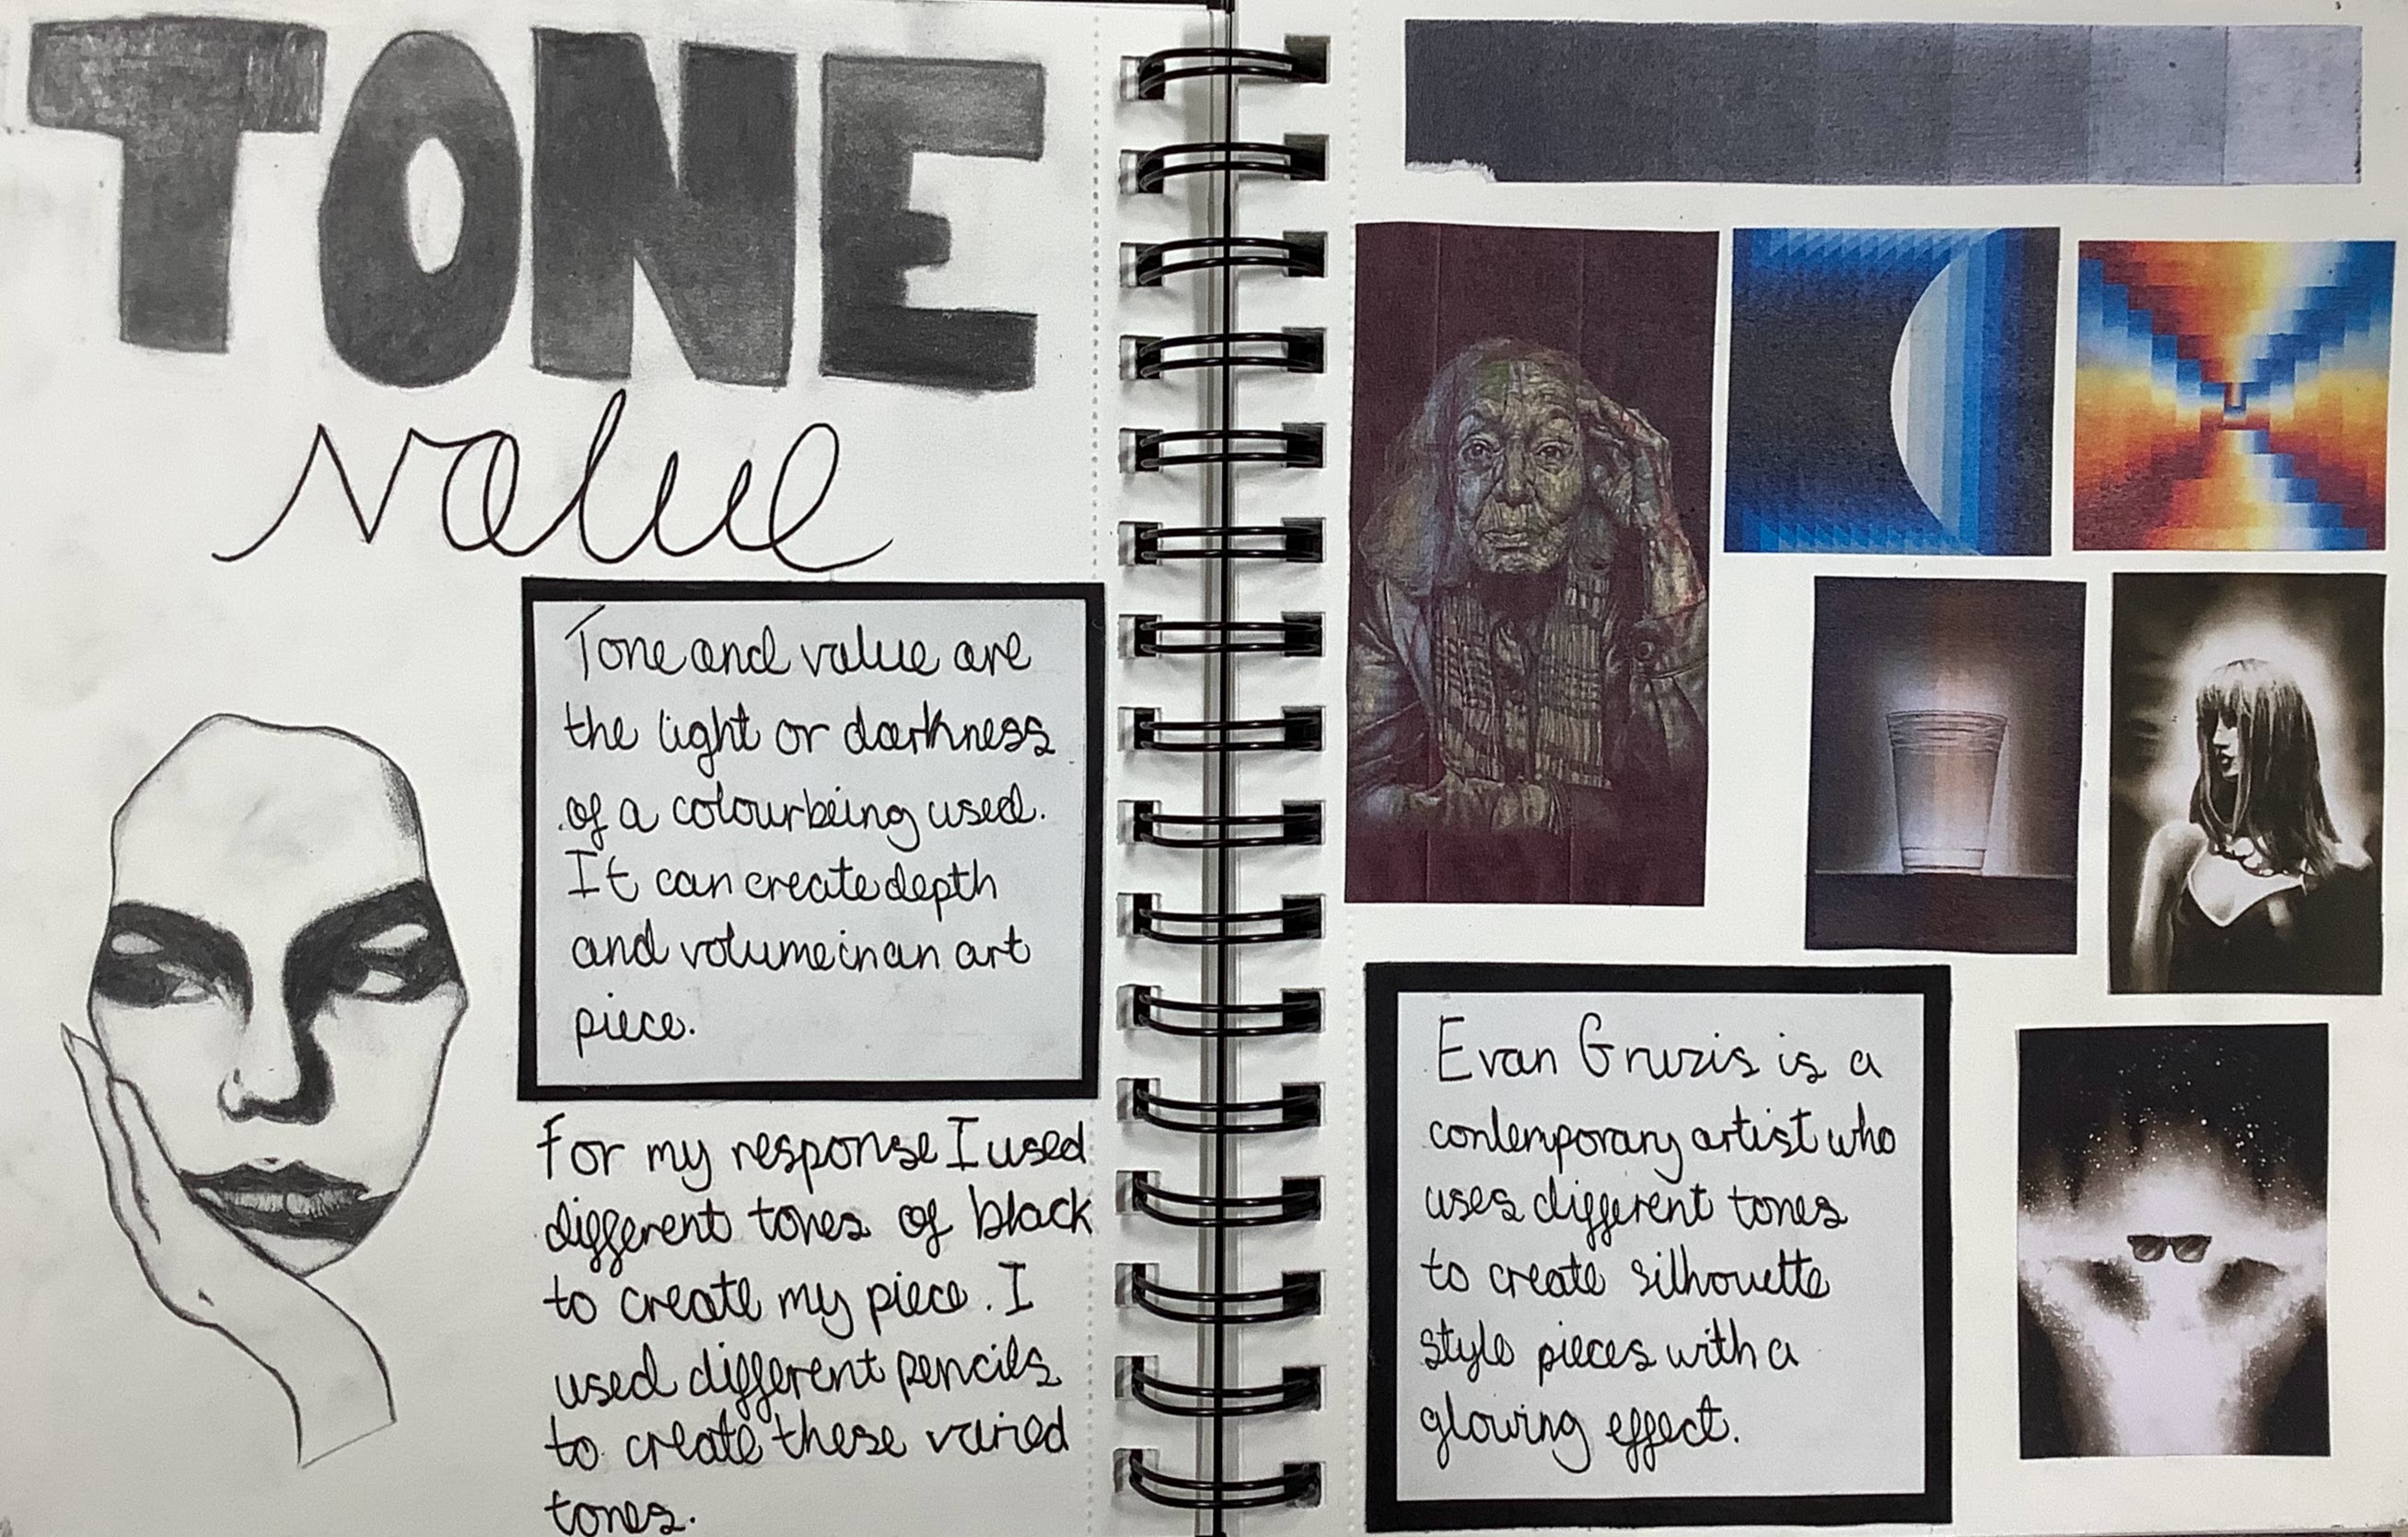 TONE
value
Tone and value are
the light or darkness
of a colour being used.
It can create depth
and volume in an art
piece.
For my response I used
different tones of black
to create my piece. I
used different pencils
to create these varied
tones.
Evan Gruzis is a
contemporary artist who
uses different tones
to create silhouette
style pieces with a
glowing effect.